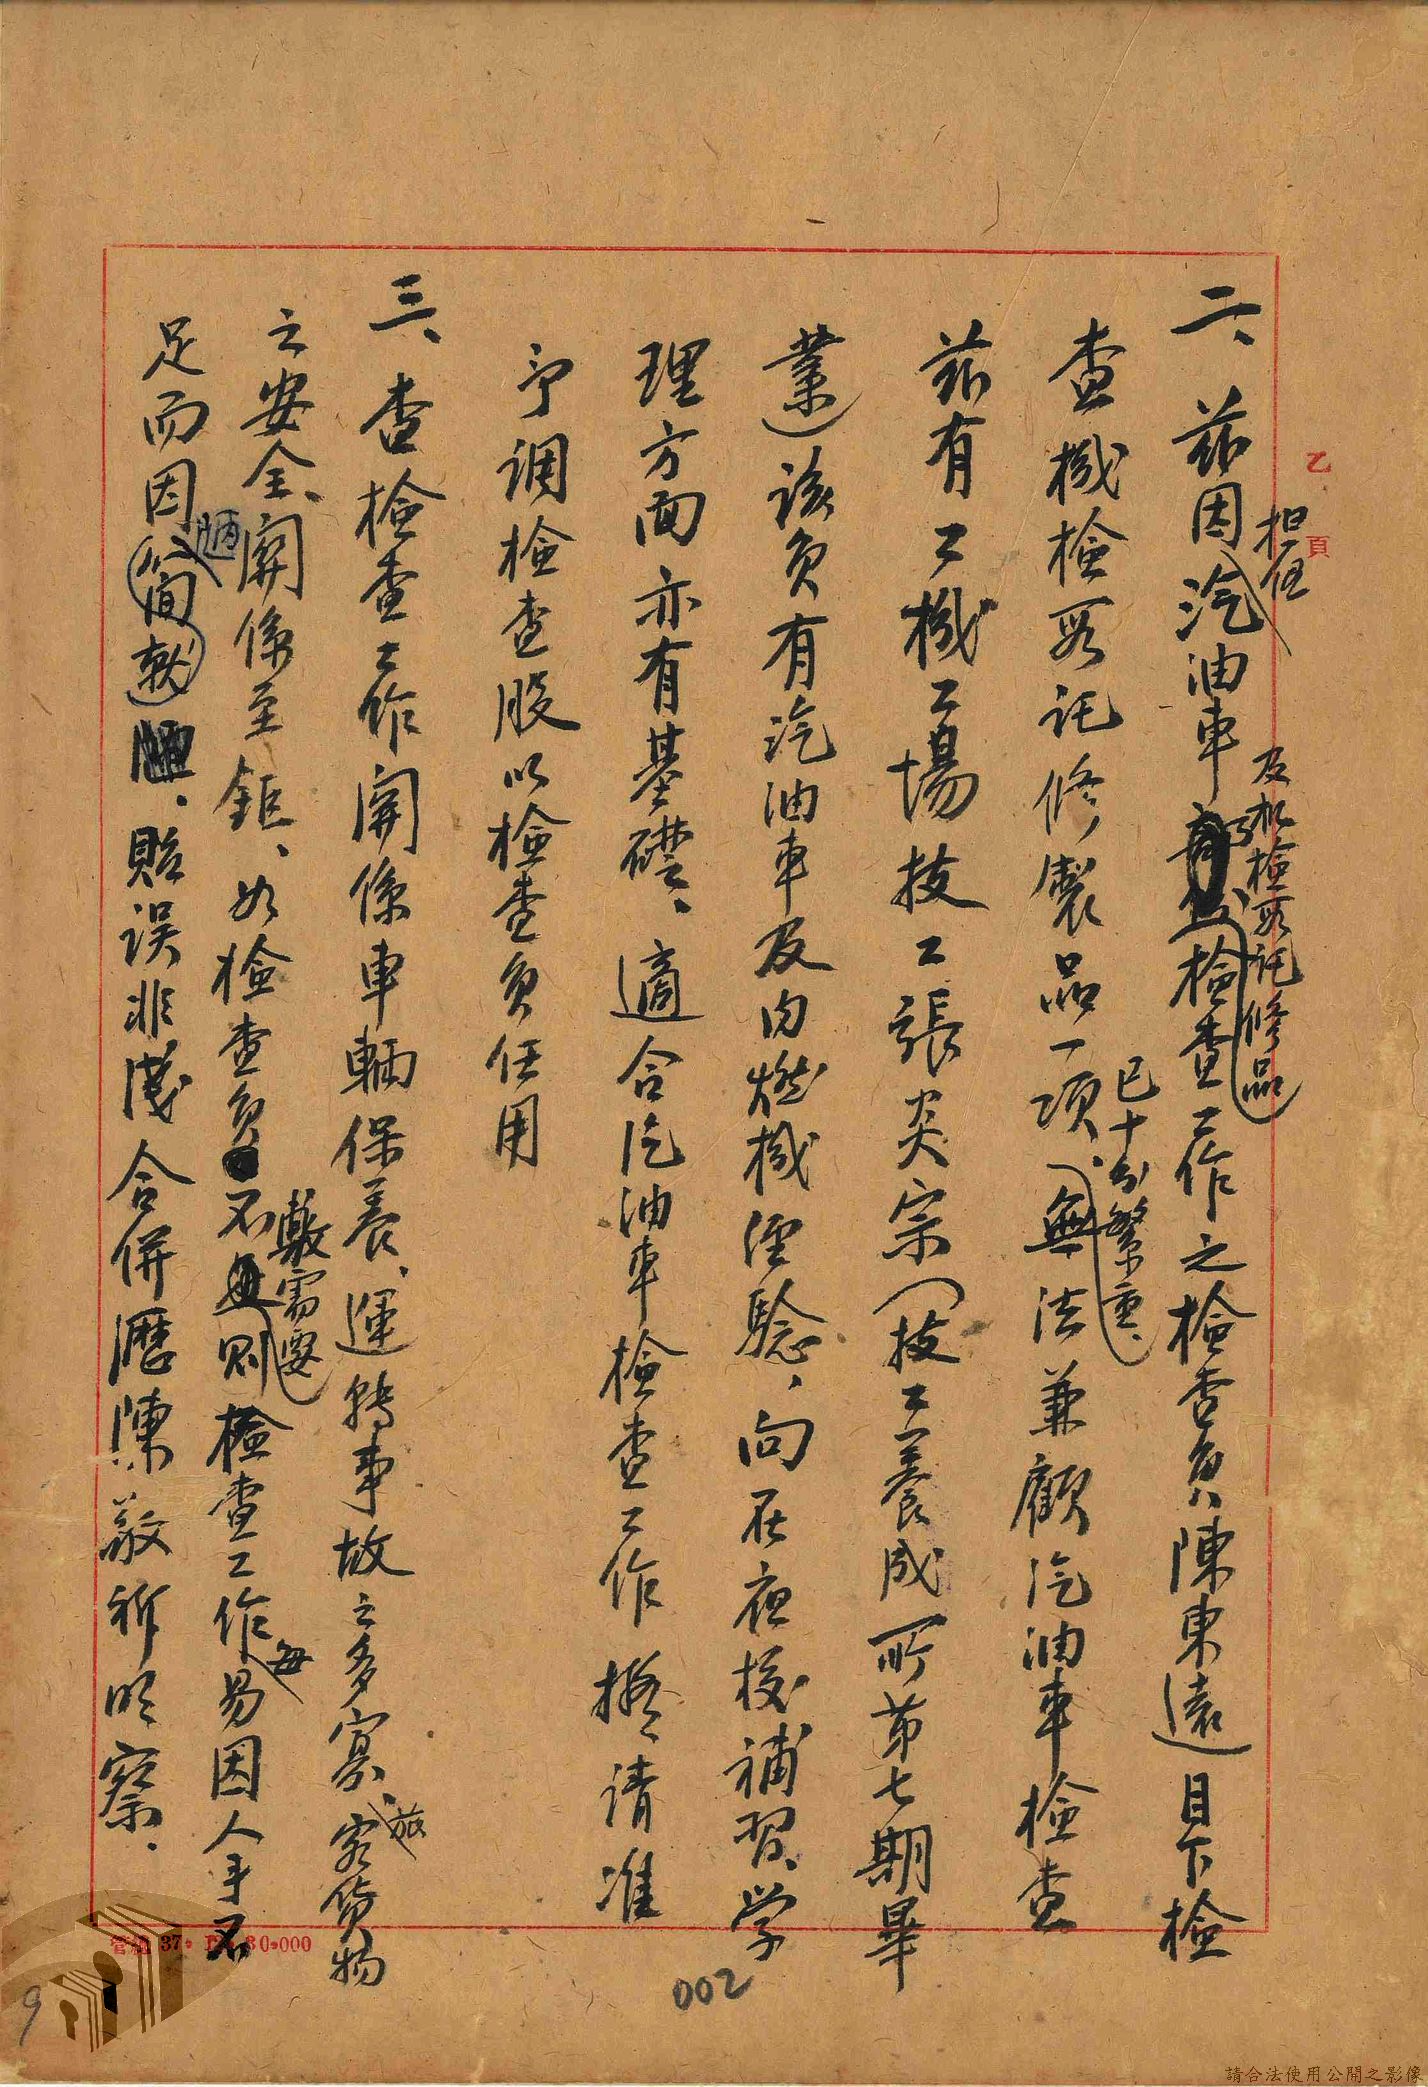 乙頁
二、茲因担任汽油車及机檢段託修品檢查工作之檢查員陳東遠目下檢
查機檢段託修製品一項、已十分繁重、無法兼顧汽油車檢查
茲有工機工場技工張炎宗（技工養成所第七期畢
業）該員有汽油車及內燃機經驗、向在夜校補習、学
理方面亦有基礎、適合汽油車檢查工作擬請准
予調檢查股以檢查員任用
三、查檢查工作関係車輛保養、運轉事故之多寡、旅客貨物
之安全、関係至鉅、如檢查員不敷需要則檢查工作每易因人手不
足而因簡就陋、貽誤非淺合併瀝陳敬祈明察．
002
9
請合法使用公開之影像